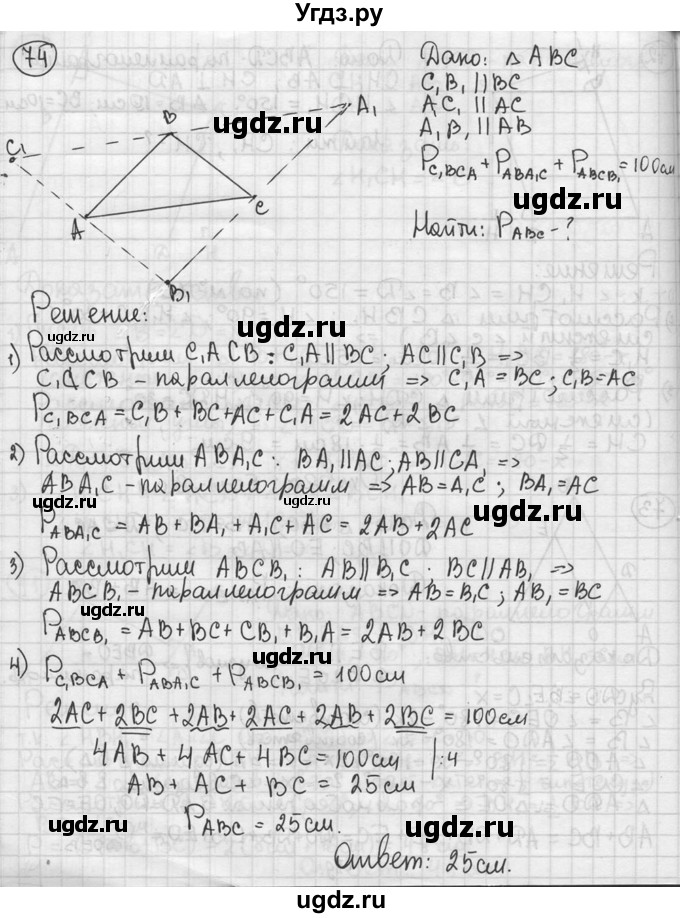 Угдз.ру
74
Дано: △ ABC
C₁B₁ || BC
AC₁ || AC
A₁B₁ || AB
P C₁BCA + P ABA₁C + P ABCB₁ = 100см
Найти: P ABC - ?
C₁ B A₁
A C
B₁
Решение:
1) Рассмотрим C₁ACB : C₁A || BC ; AC || C₁B =>
C₁ACB - параллелограмм => C₁A = BC ; C₁B = AC
P C₁BCA = C₁B + BC + AC + C₁A = 2AC + 2BC
2) Рассмотрим ABA₁C : BA₁ || AC ; AB || CA₁ =>
ABA₁C - параллелограмм => AB = A₁C ; BA₁ = AC
P ABA₁C = AB + BA₁ + A₁C + AC = 2AB + 2AC
3) Рассмотрим ABCB₁ : AB || B₁C ; BC || AB₁ =>
ABCB₁ - параллелограмм => AB = B₁C ; AB₁ = BC
P ABCB₁ = AB + BC + CB₁ + B₁A = 2AB + 2BC
4) P C₁BCA + P ABA₁C + P ABCB₁ = 100см
2AC + 2BC + 2AB + 2AC + 2AB + 2BC = 100см
4AB + 4AC + 4BC = 100см | :4
AB + AC + BC = 25см
P ABC = 25см.
Ответ: 25см.
ugdz.ru
ugdz.ru
ugdz.ru
ugdz.ru
ugdz.ru
ugdz.ru
ugdz.ru
ugdz.ru
ugdz.ru
ugdz.ru
ugdz.ru
ugdz.ru